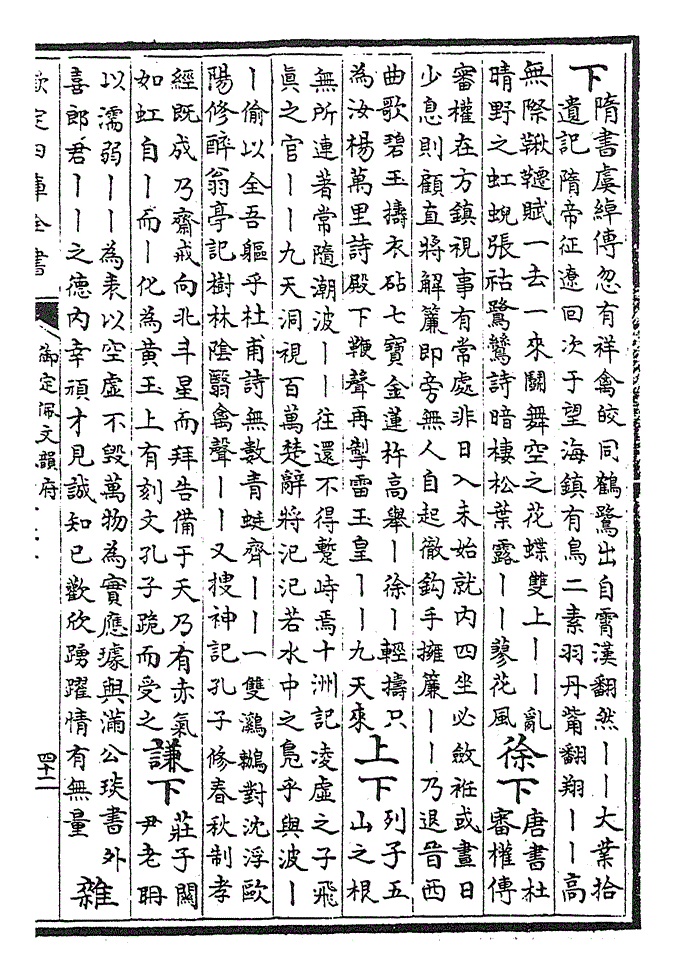 下
隋書虞綽傳忽有祥禽皎同鶴鷺出自霄漢翻然丨丨大業拾
遺記隋帝征遼回次于望海鎮有鳥二素羽丹觜翻翔丨丨高
無際鞦韆賦一去一來鬬舞空之花蝶雙上丨丨亂
晴野之虹蜺張祜鷺鷥詩暗棲松葉露丨丨蓼花風
徐下
唐書杜
審權傳
審權在方鎮視事有常處非日入未始就內四坐必斂袵或晝日
少息則顧直將解簾即旁無人自起徹鈎手擁簾丨丨乃退晉西
曲歌碧玉擣衣砧七寶金蓮杵高舉丨徐丨輕擣只
為汝楊萬里詩殿下鞭聲再掣雷玉皇丨丨九天來
上下
列子五
山之根
無所連著常隨潮波丨丨往還不得蹔峙焉十洲記凌虛之子飛
真之官丨丨九天洞視百萬楚辭將氾氾若水中之鳬乎與波丨
丨偷以全吾軀乎杜甫詩無數青蜓齊丨丨一雙鸂鶒對沈浮歐
陽修醉翁亭記樹林陰翳禽聲丨丨又搜神記孔子修春秋制孝
經既成乃齋戒向北斗星而拜告備于天乃有赤氣
如虹自丨而丨化為黃玉上有刻文孔子跪而受之
謙下
莊子關
尹老耼
以濡弱丨丨為表以空虛不毀萬物為實應璩與滿公琰書外
喜郎君丨丨之德內幸頑才見誠知已歡欣踴躍情有無量
雜
欽定四庫全書
御定佩文韻府
四十二